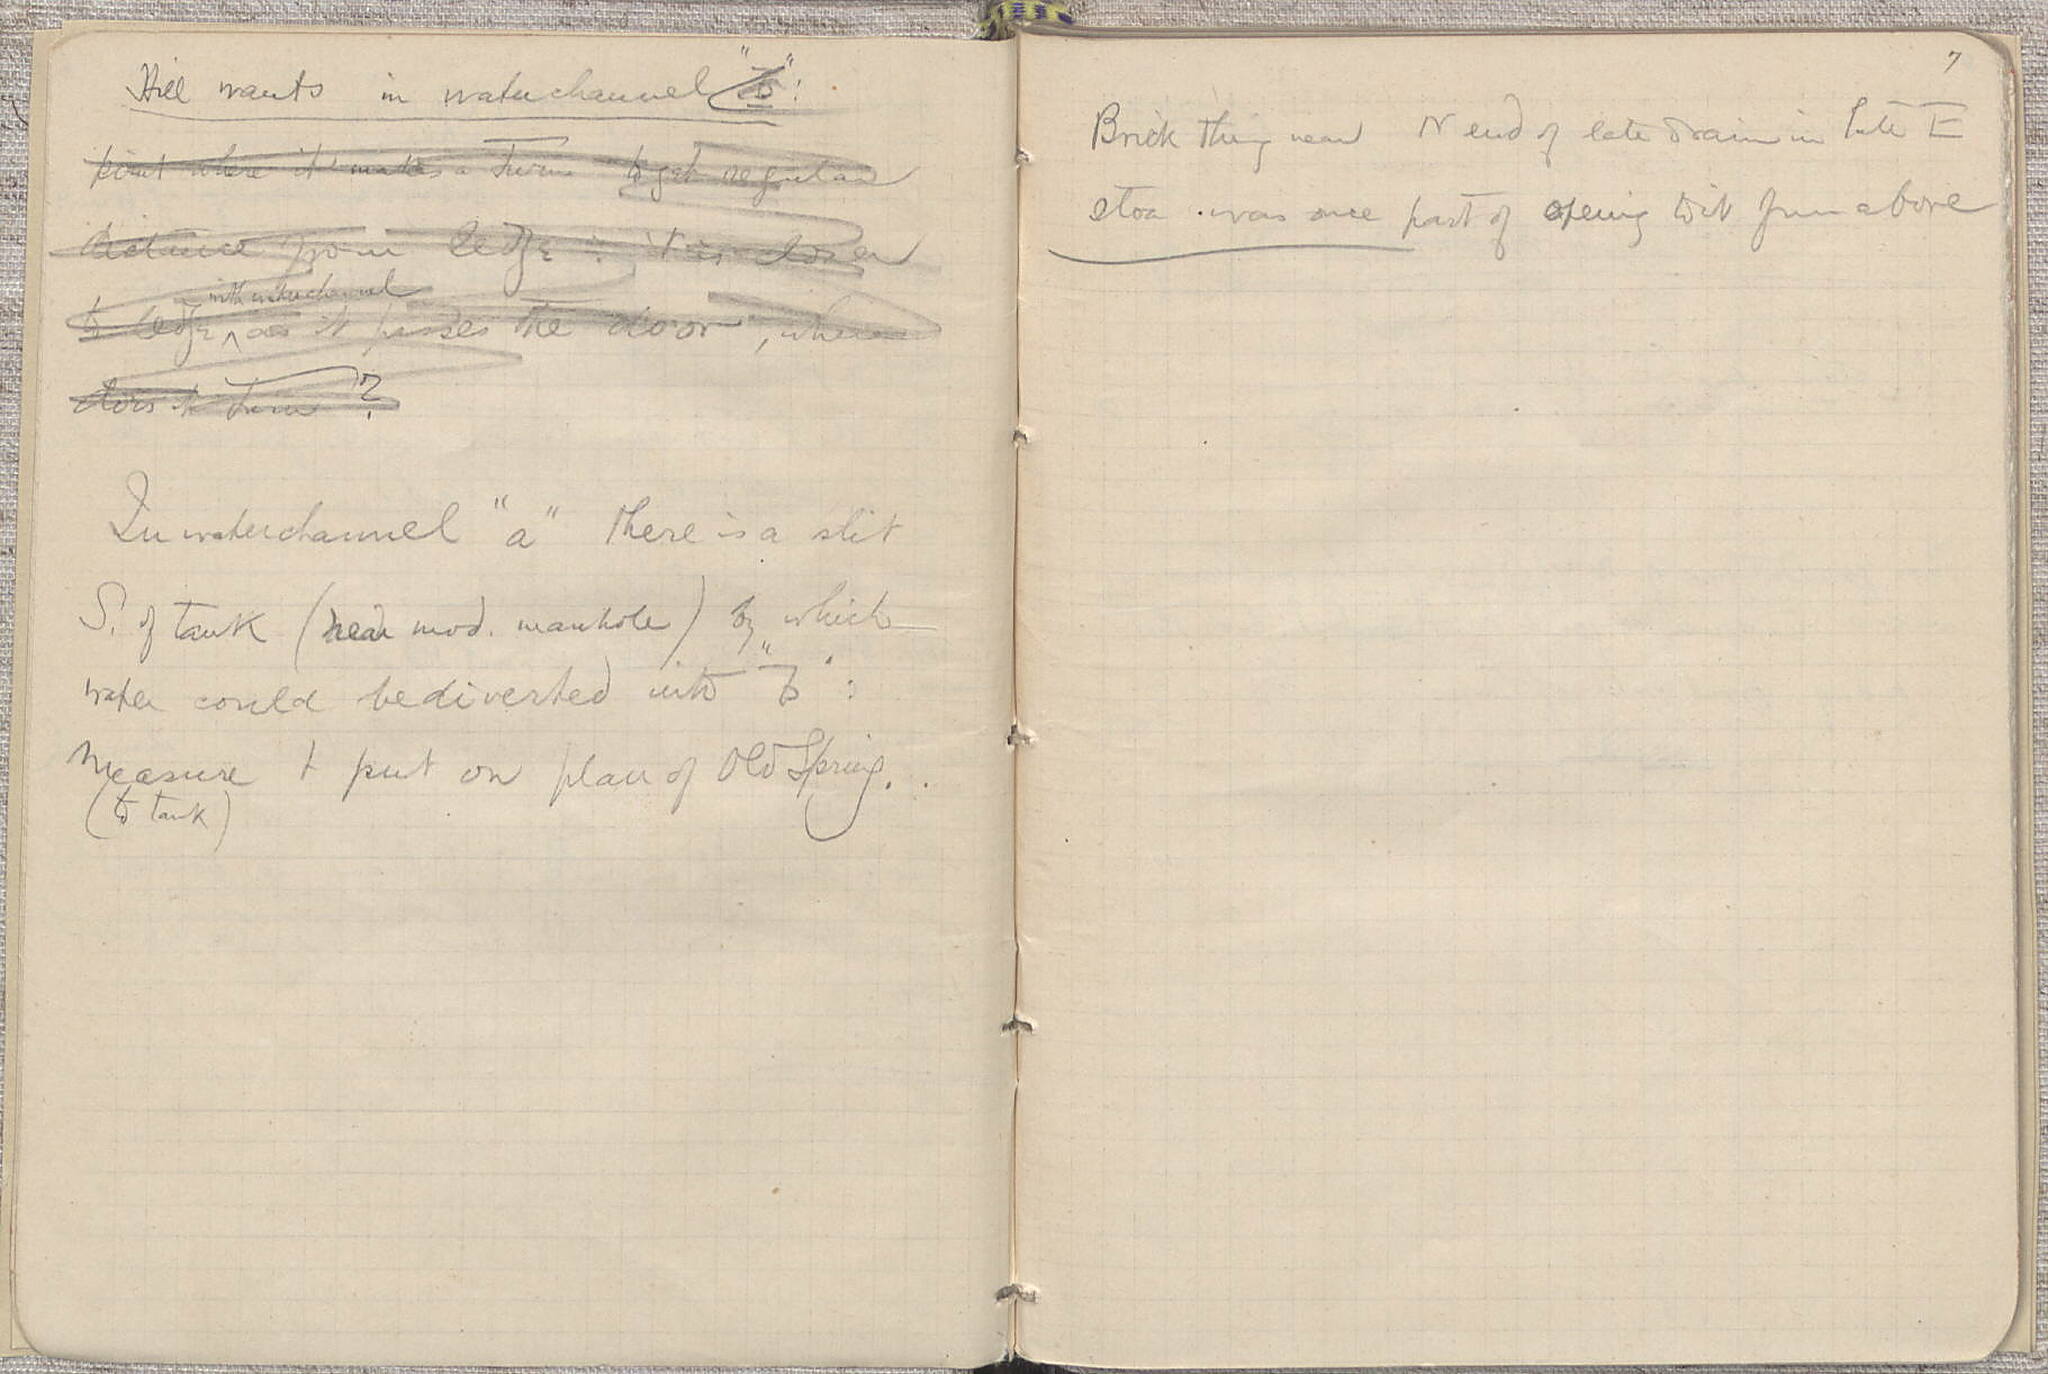 Hill wants in waterchannel "b":
point where it makes a turn to get regular
distance from ledge : it is closer
with waterchannel
to ledge ^ as it passes the door, where
does it turn?
In waterchannel "a" there is a slit
S. of tank (near mod. manhole) by which
water could be diverted into "b":
Measure + put on plan of Old Spring.
(to tank)
7
Brick thing near N end of late drain in late E
stoa was once part of opening to it from above